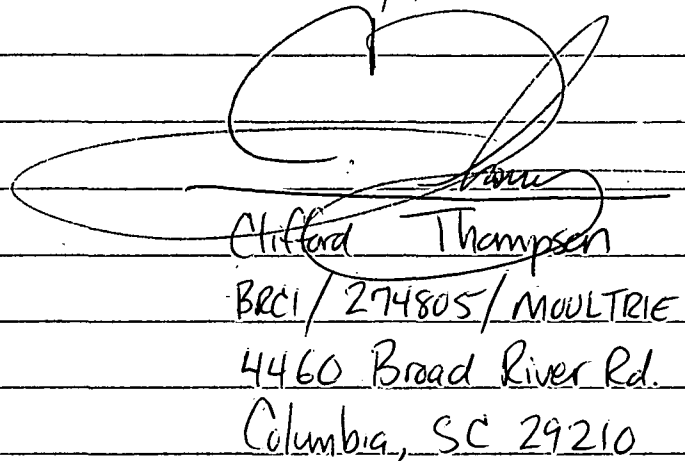 Clifford Thompson
BRCI/274805/MOULTRIE
4460 Broad River Rd.
Columbia, SC 29210